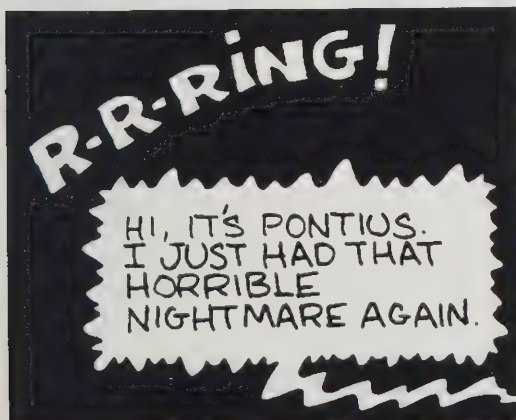 R-R-RiNG!
HI, IT'S PONTIUS.
I JUST HAD THAT
HORRIBLE
NIGHTMARE AGAIN.